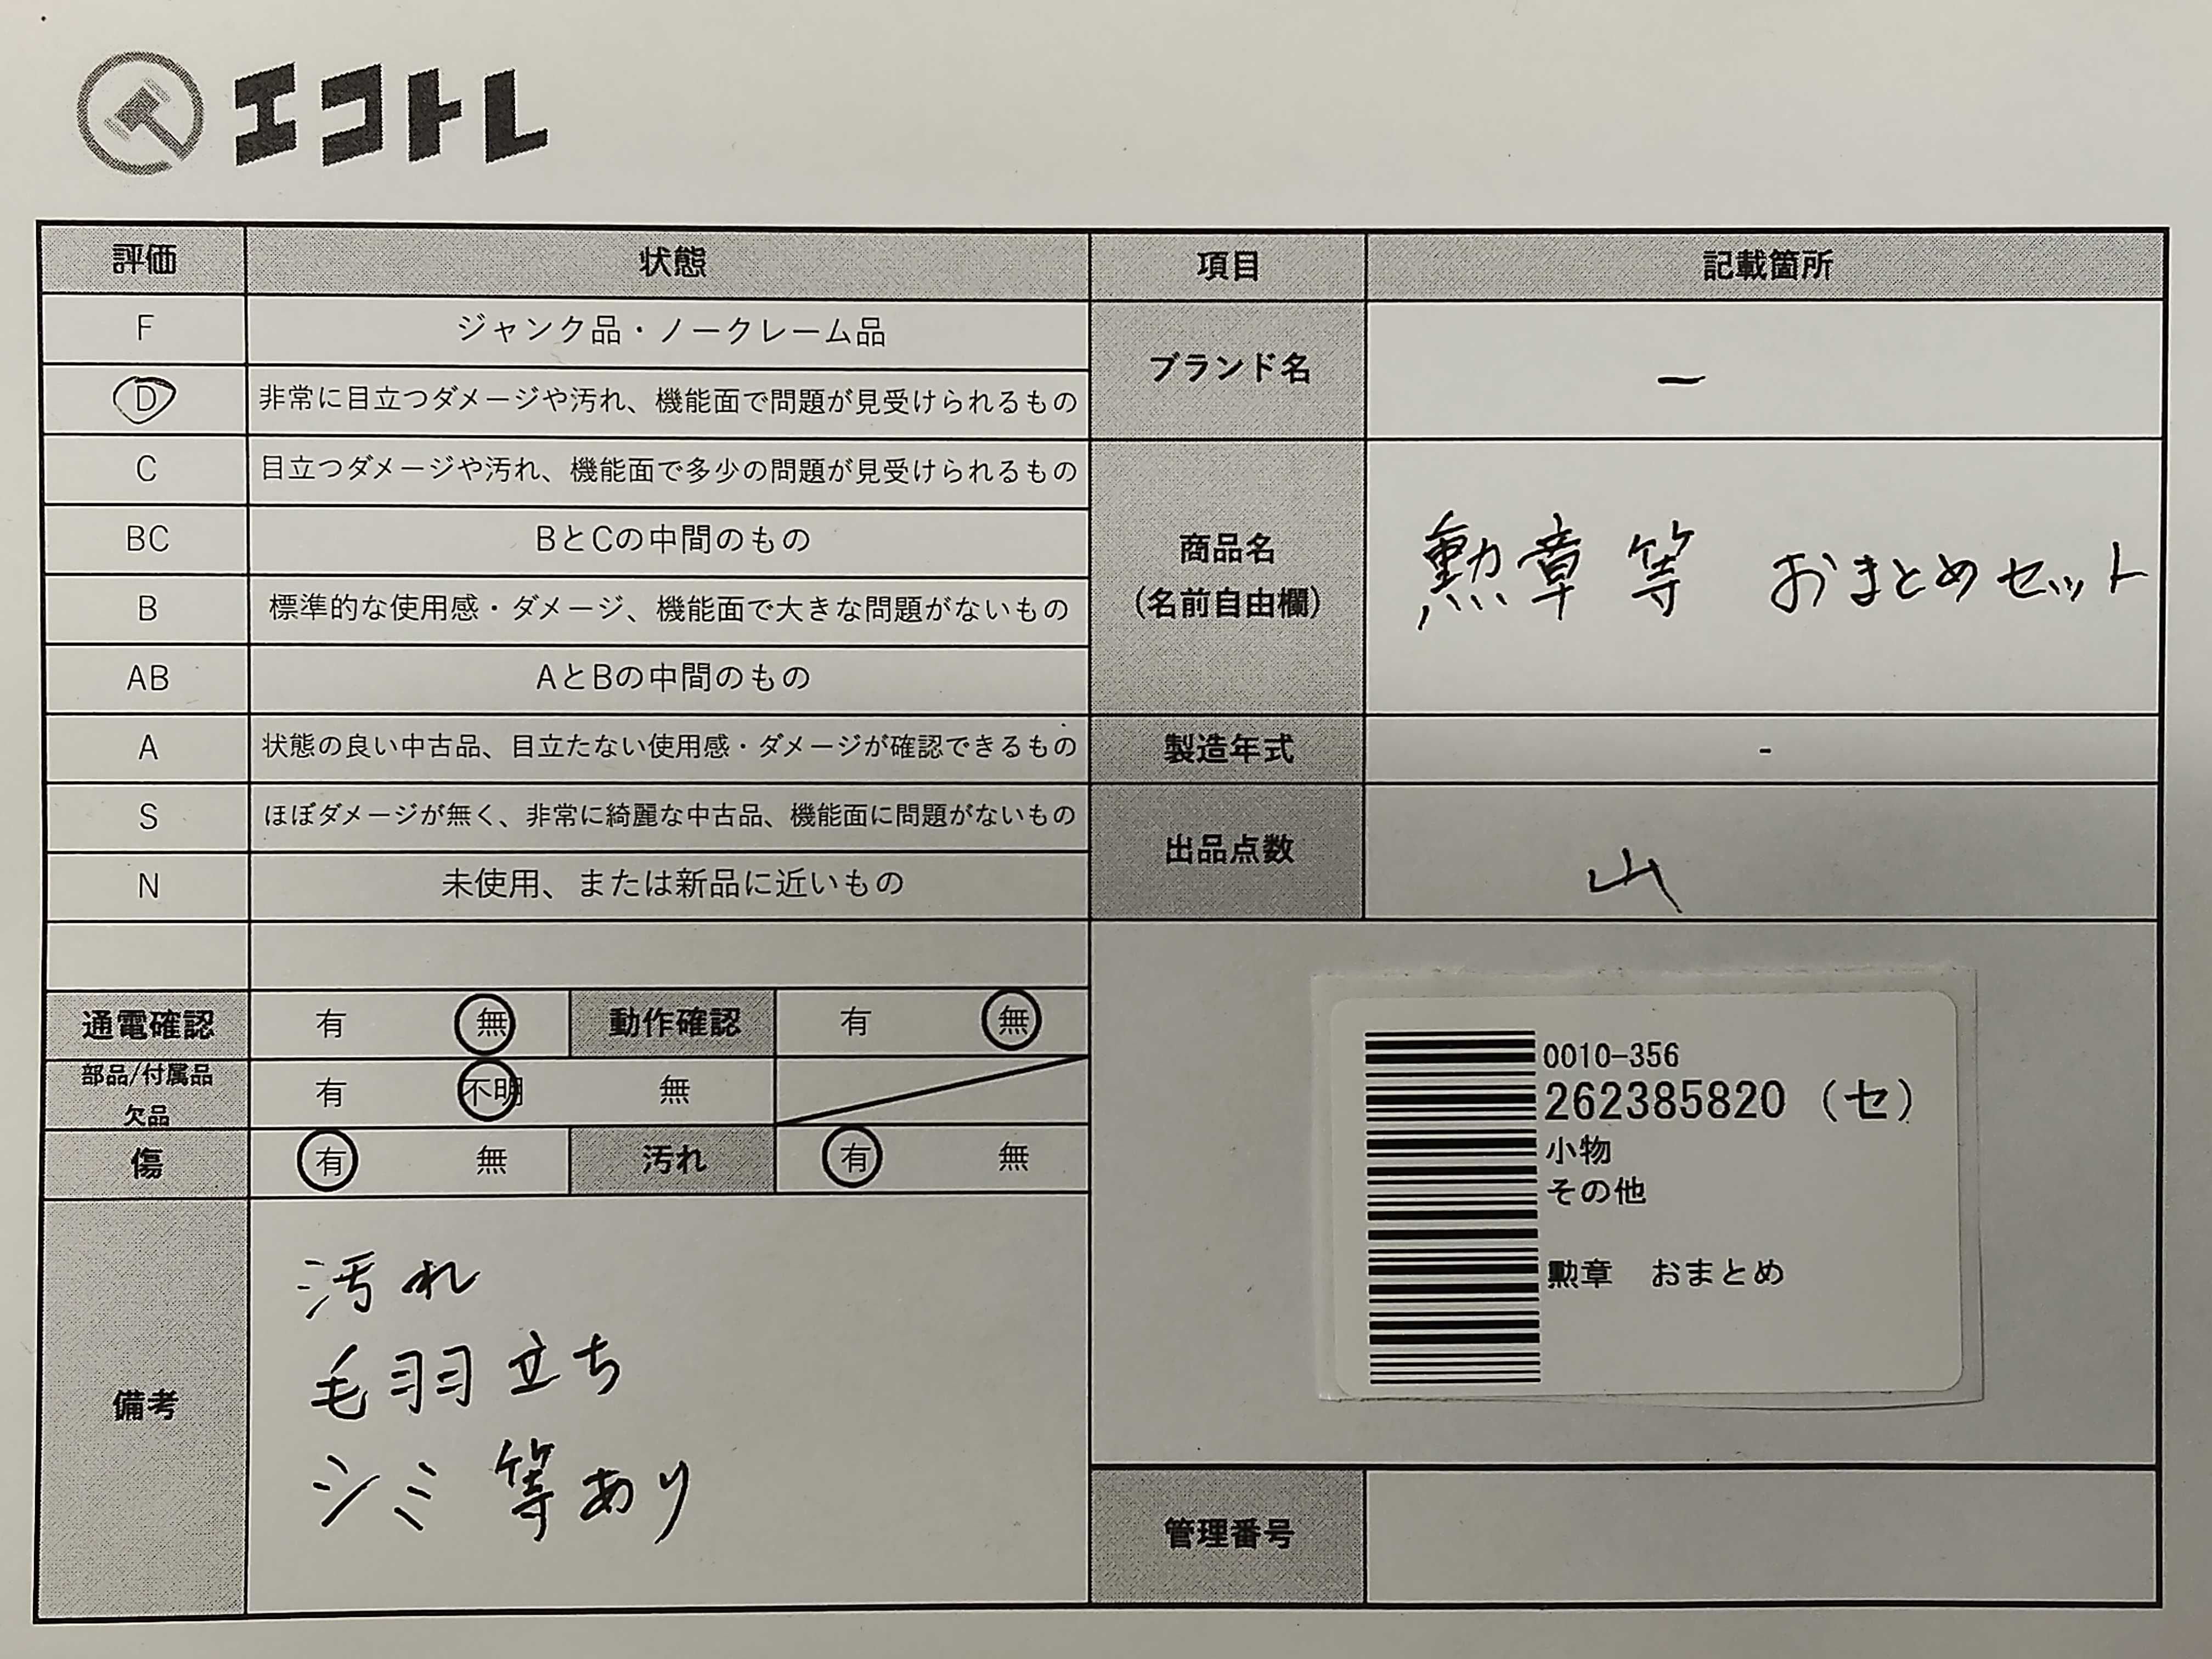 エコトレ
評価 状態 項目 記載箇所
F ジャンク品・ノークレーム品
D 非常に目立つダメージや汚れ、機能面で問題が見受けられるもの
ブランド名 ー
C 目立つダメージや汚れ、機能面で多少の問題が見受けられるもの
BC BとCの中間のもの
B 標準的な使用感・ダメージ、機能面で大きな問題がないもの
AB AとBの中間のもの
商品名
(名前自由欄)
勲章等 おまとめセット
A 状態の良い中古品、目立たない使用感・ダメージが確認できるもの
製造年式 -
S ほぼダメージが無く、非常に綺麗な中古品、機能面に問題がないもの
N 未使用、または新品に近いもの
出品点数 山
通電確認 有 無 動作確認 有 無
部品/付属品
欠品
有 不明 無
傷 有 無 汚れ 有 無
備考
汚れ
毛羽立ち
シミ等あり
0010-356
262385820 (セ)
小物
その他
勲章 おまとめ
管理番号